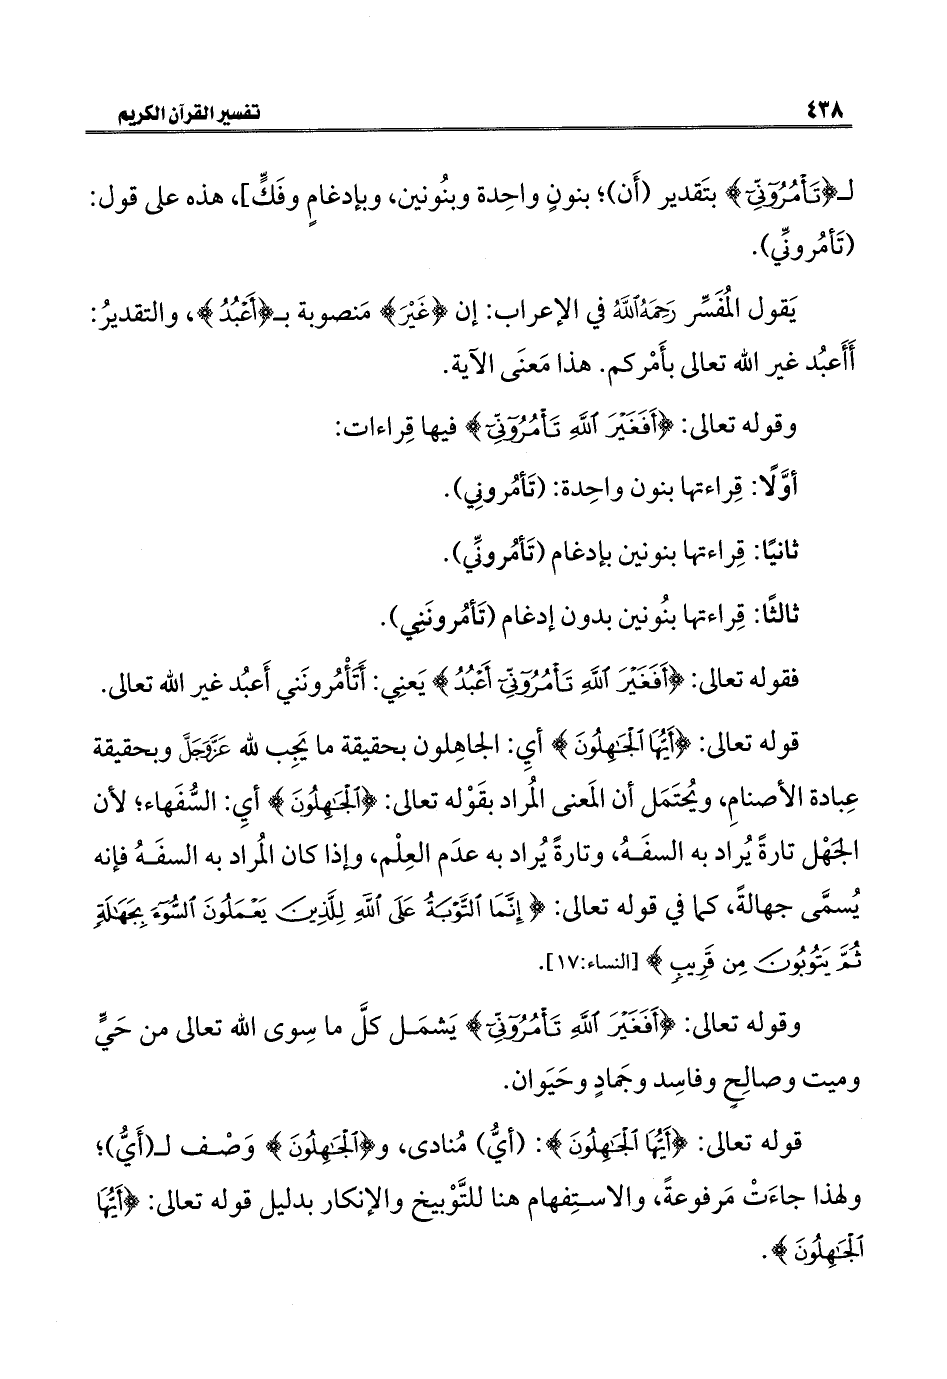 ٤٣٨ تفسير القرآن الكريم
لـ﴿تَأْمُرُوٓنِّىٓ﴾ بتَقدير (أَن)؛ بنونٍ واحِدة وبنُونين، وبإدغامٍ وفَكٍّ]، هذه على قول:
(تَأمُرونِّي).
يَقول المُفَسِّر رَحِمَهُ اللَّهُ في الإعراب: إن ﴿غَيْرَ﴾ مَنصوبة بـ﴿أَعْبُدُ﴾، والتقديرُ:
أَأَعبُد غير الله تعالى بأَمْركم. هذا مَعنَى الآية.
وقوله تعالى: ﴿أَفَغَيْرَ ٱللَّهِ تَأْمُرُوٓنِّىٓ﴾ فيها قِراءات:
أوَّلًا: قِراءتها بنون واحِدة: (تَأمُروني).
ثانيًا: قِراءتها بنونين بإدغام (تَأمُرونِّي).
ثالثًا: قِراءتها بنُونين بدون إدغام (تَأمُرونَنِي).
فقوله تعالى: ﴿أَفَغَيْرَ ٱللَّهِ تَأْمُرُوٓنِّىٓ أَعْبُدُ﴾ يَعنِي: أَتَأْمُرونَني أَعبُد غير الله تعالى.
قوله تعالى: ﴿أَيُّهَا ٱلْجَٰهِلُونَ﴾ أي: الجاهِلون بحقيقة ما يَجِب لله عَزَّوَجَلَّ وبحقيقة
عِبادة الأصنامِ، ويُحتَمَل أن المَعنى المُراد بقَوْله تعالى: ﴿ٱلْجَٰهِلُونَ﴾ أي: السُّفَهاء؛ لأن
الجَهْل تارةً يُراد به السفَهُ، وتارةً يُراد به عدَم العِلْم، وإذا كان المُراد به السفَهُ فإنه
يُسمَّى جهالةً، كما في قوله تعالى: ﴿إِنَّمَا ٱلتَّوْبَةُ عَلَى ٱللَّهِ لِلَّذِينَ يَعْمَلُونَ ٱلسُّوٓءَ بِجَهَٰلَةٍ
ثُمَّ يَتُوبُونَ مِن قَرِيبٍ﴾ [النساء:١٧].
وقوله تعالى: ﴿أَفَغَيْرَ ٱللَّهِ تَأْمُرُوٓنِّىٓ﴾ يَشمَل كلَّ ما سِوى الله تعالى من حَيٍّ
وميت وصالِحٍ وفاسِد وجَمادٍ وحَيَوان.
قوله تعالى: ﴿أَيُّهَا ٱلْجَٰهِلُونَ﴾: (أيُّ) مُنادى، و﴿ٱلْجَٰهِلُونَ﴾ وَصْف لـ(أَيُّ)؛
ولهذا جاءَتْ مَرفوعةً، والاستِفهام هنا للتَّوْبيخ والإنكار بدليل قوله تعالى: ﴿أَيُّهَا
ٱلْجَٰهِلُونَ﴾.